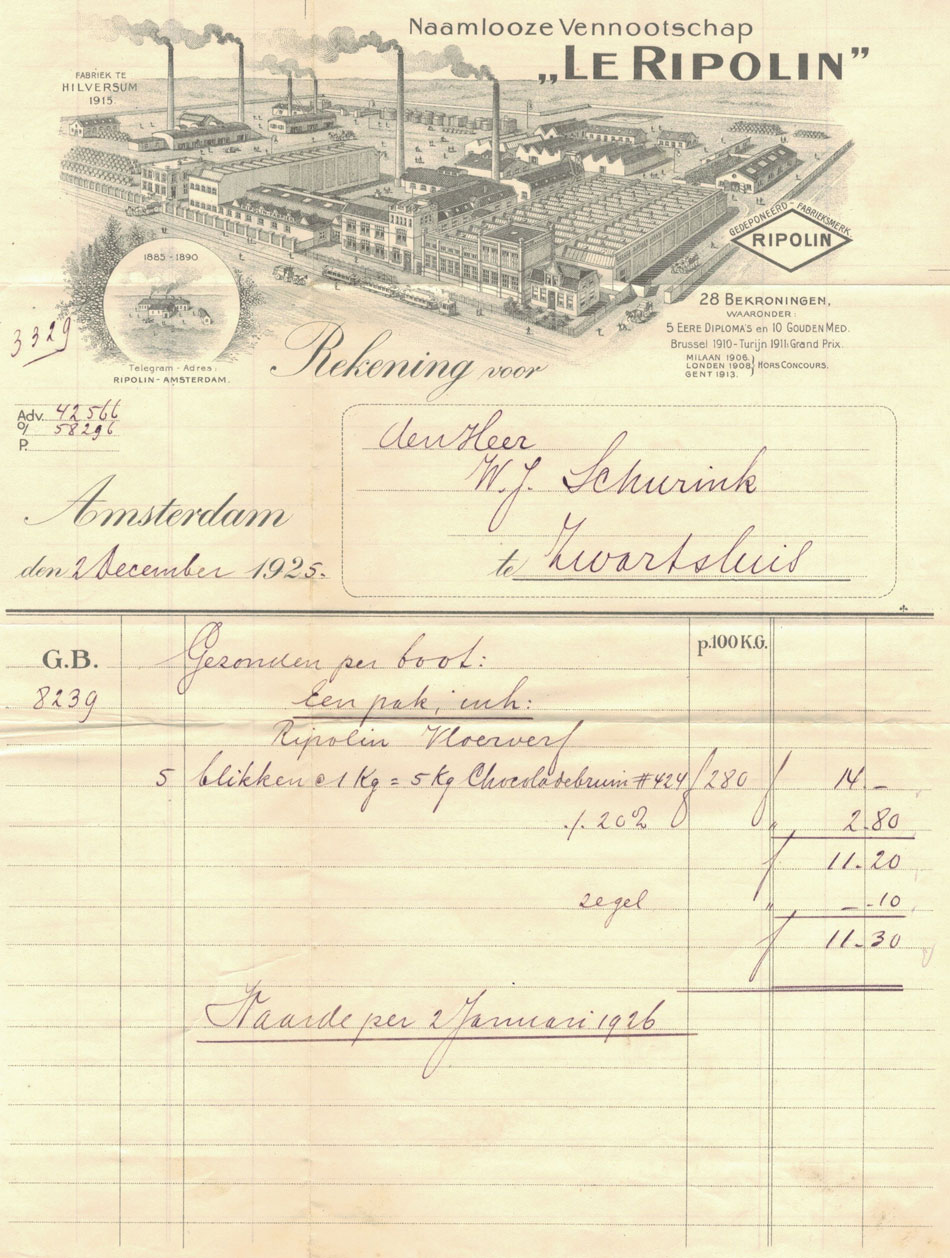 Naamlooze Vennootschap
„LE RIPOLIN”
FABRIEK TE
HILVERSUM
1915.
GEDEPONEERD - FABRIEKSMERK.
RIPOLIN
1885 - 1890
28 BEKRONINGEN,
WAARONDER:
5 EERE DIPLOMA'S en 10 GOUDEN MED.
Brussel 1910 - Turijn 1911: Grand Prix.
MILAAN 1906.
LONDEN 1908. } HORS CONCOURS.
GENT 1913.
3329
Telegram - Adres:
RIPOLIN - AMSTERDAM.
Rekening voor
Adv. 42566
O/ 58296
P.
den Heer
W. J. Schurink
te Zwartsluis
Amsterdam
den 2 December 1925.
G.B. p. 100 K.G.
Gezonden per boot:
8239 Een pak, inh:
Ripolin Vloerverf
5 blikken à 1 Kg = 5 Kg Chocoladebruin #424 f 280 f 14.-
./. 20% " 2.80
f 11.20
zegel " -.10
f 11.30
Waarde per 2 Januari 1926